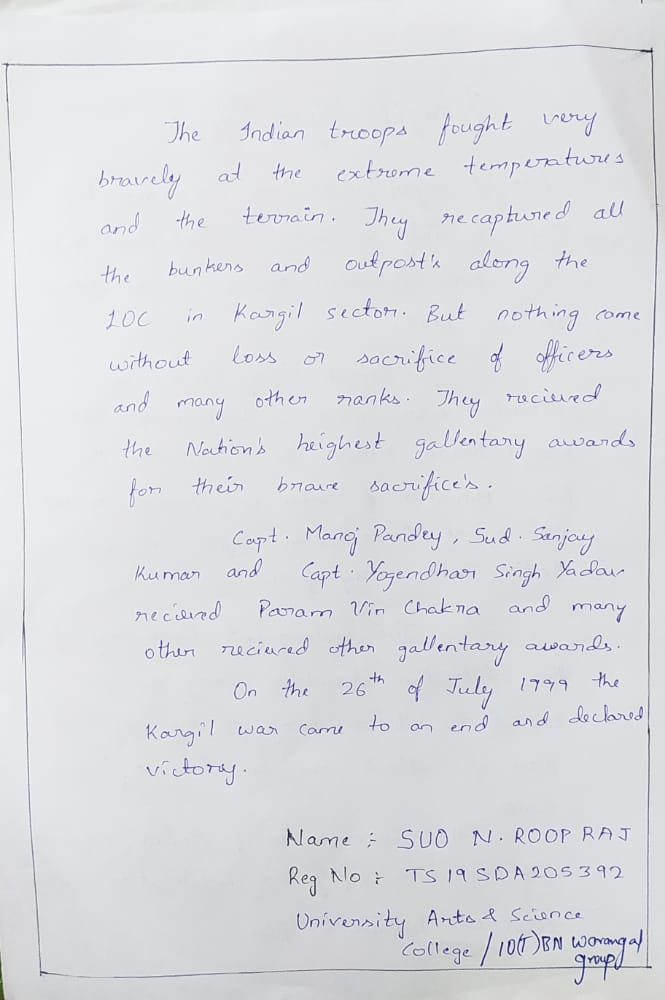 The Indian troops fought very
bravely at the extreme temperatures
and the terrain. They recaptured all
the bunkers and outpost's along the
LOC in Kargil sector. But nothing came
without loss or sacrifice of officers
and many other ranks. They recieved
the Nation's heighest gallentary awards
for their brave sacrifice's.
Capt. Manoj Pandey, Sud. Sanjay
Kumar and Capt. Yogendhar Singh Yadav
recieved Param Vir Chakra and many
other recieved other gallentary awards.
On the 26th of July 1999 the
Kargil war came to an end and declared
victory.
Name :- SUO N. ROOP RAJ
Reg No :- TS19SDA205392
University Arts & Science
College / 10(T)BN Warangal
group